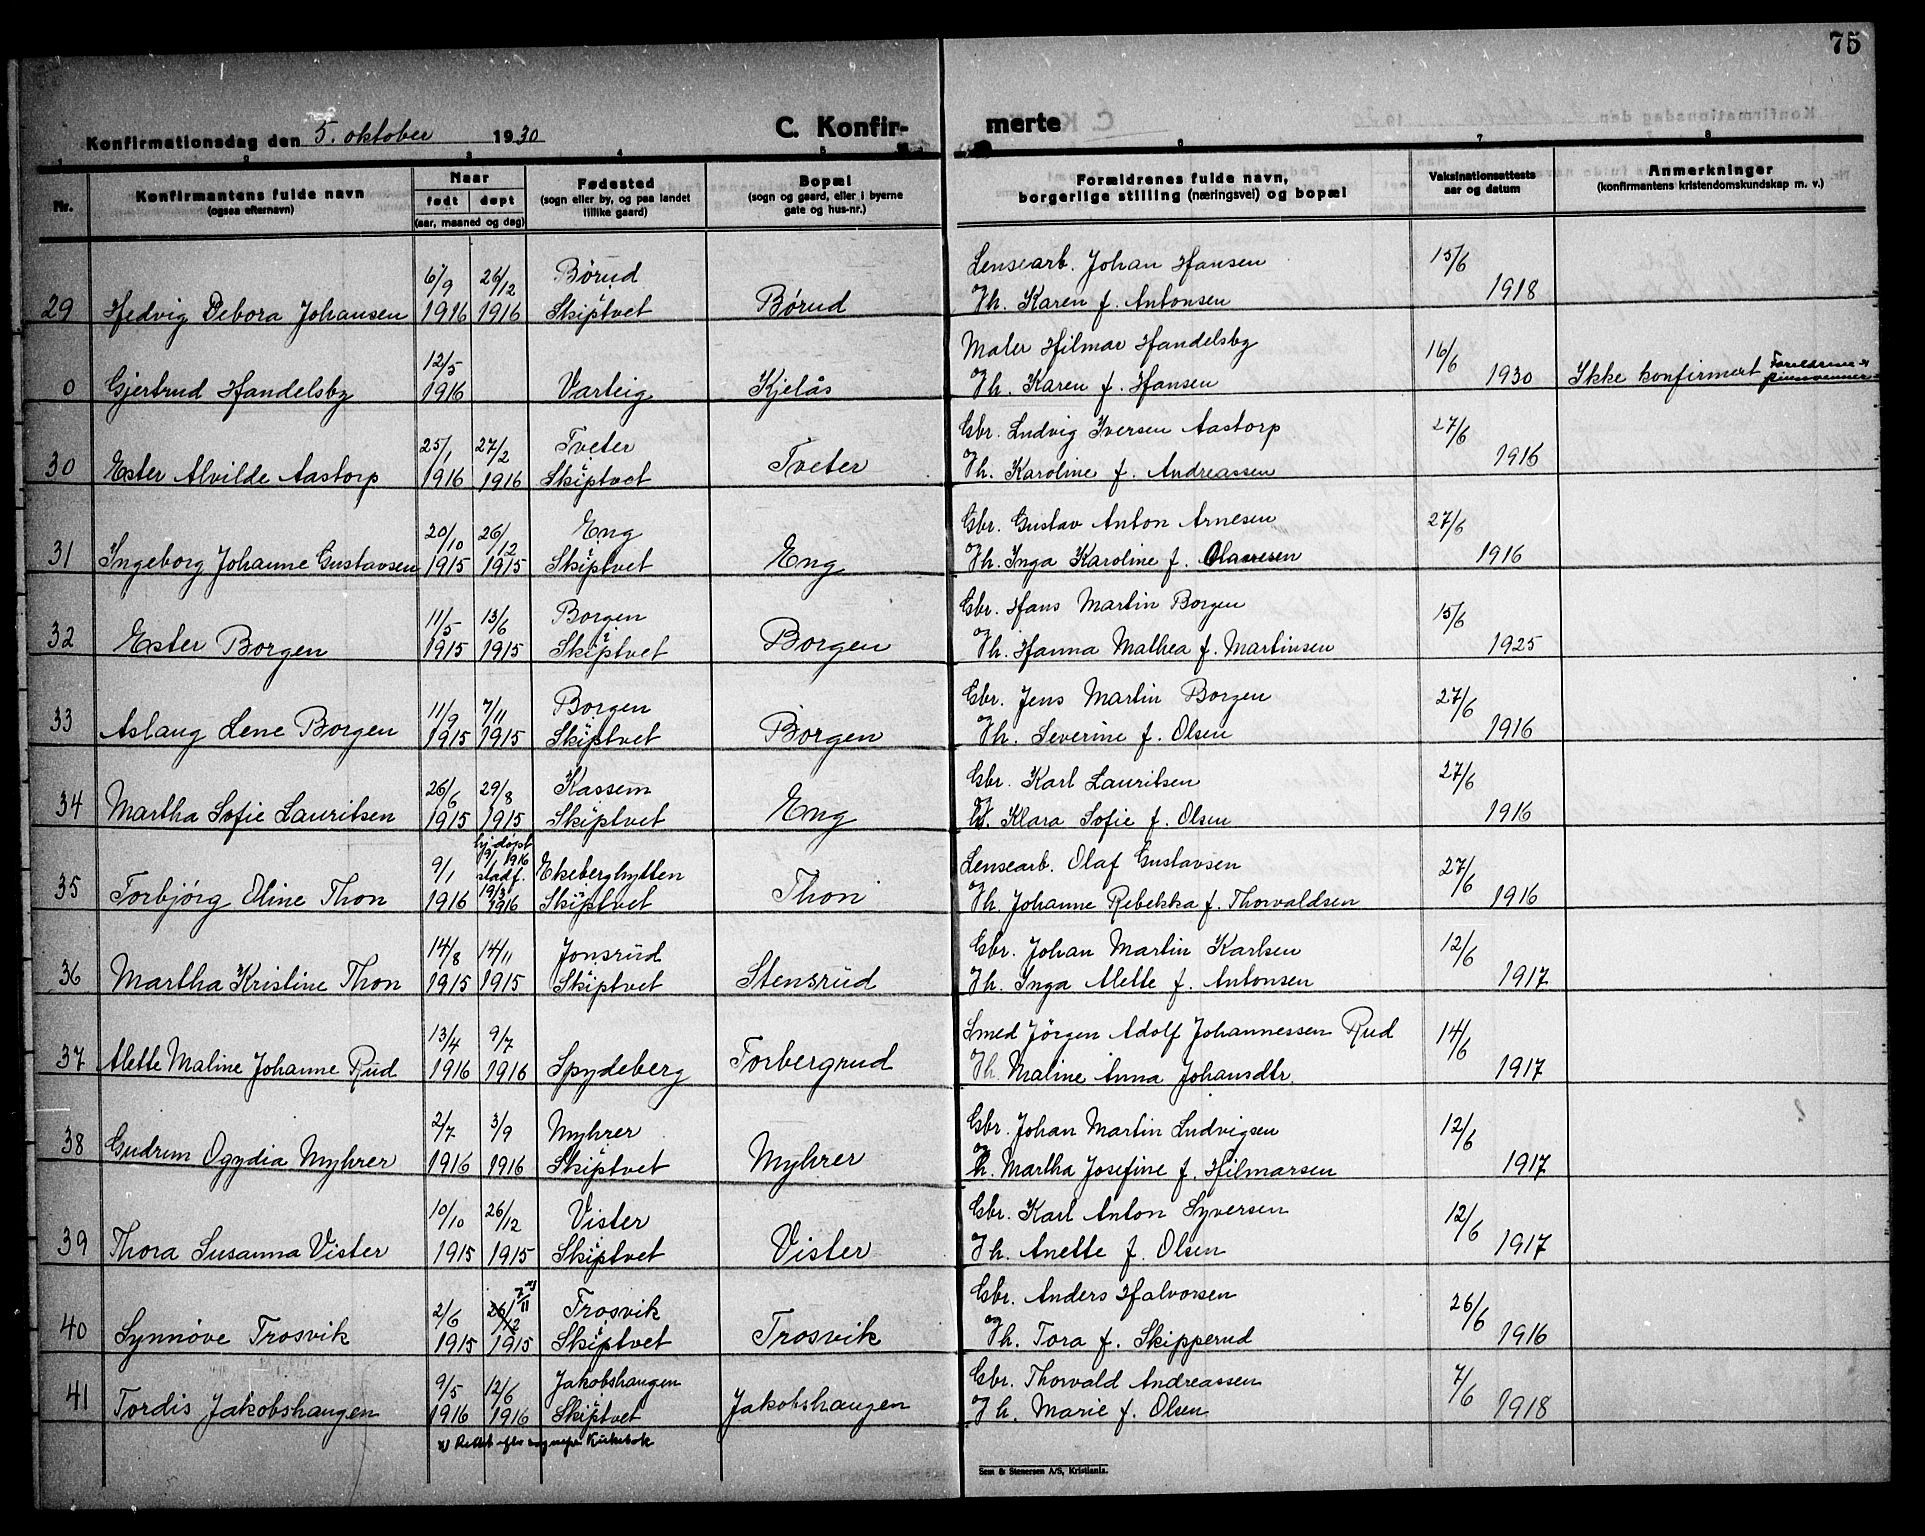 75
Konfirmationsdag den 5. oktober 1930
C. Konfirmerte
1 2 3 4 5 6 7 8
Nr.
Konfirmantens fulde navn
(ogsaa efternavn)
Naar
født døpt
(aar, maaned og dag)
Fødested
(sogn eller by, og paa landet
tillike gaard)
Bopæl
(sogn og gaard, eller i byerne
gate og hus-nr.)
Forældrenes fulde navn,
borgerlige stilling (næringsvei) og bopæl
Vaksinationsattests
aar og datum
Anmerkninger
(konfirmantens kristendomskundskap m. v.)
6/9 26/2 Børud Lensearb. Johan Hansen 15/6
29 Hedvig Debora Johansen 1916 1916 Skiptvet Børud og H. Karen f. Antonsen 1918
12/5 Maler Hilmar Handelsby 16/6
0 Gjertrud Handelsby 1916 Varteig Kjelås og H. Karen f. Hansen 1930 Ikke konfirmert Foreldrene pinsevenner
25/1 27/2 Tveter Gbr. Ludvig Iversen Aastorp 27/6
30 Ester Alvilde Aastorp 1916 1916 Skiptvet Tveter og H. Karoline f. Andreassen 1916
20/10 26/12 Eng Gbr. Gustav Anton Arnesen 27/6
31 Ingeborg Johanne Gustavsen 1915 1915 Skiptvet Eng og H. Inga Karoline f. 1916
11/5 13/6 Borgen Gbr. Hans Martin Borgen 15/6
32 Ester Borgen 1915 1915 Skiptvet Borgen og H. Hanna Mathea f. Martinsen 1925
11/9 7/11 Borgen Gbr. Jens Martin Borgen 27/6
33 Aslaug Lene Borgen 1915 1915 Skiptvet Borgen og H. Severine f. Olsen 1916
26/6 29/8 Kassem Gbr. Karl Lauritsen 27/6
34 Martha Sofie Lauritsen 1915 1915 Skiptvet Eng og H. Klara Sofie f. Olsen 1916
hj.døpt 9/1 1916
9/1 stadf. Ekeberghytten Lensearb. Olaf Gustavsen 27/6
35 Torbjørg Oline Thon 1916 19/3 1916 Skiptvet Thon og H. Johanne Rebekka f. Thorvaldsen 1916
14/8 14/11 Jonsrud Gbr. Johan Martin Karlsen 12/6
36 Martha Kristine Thon 1915 1915 Skiptvet Stensrud og H. Inga Alette f. Antonsen 1917
13/4 9/7 Smed Jørgen Adolf Johannessen Rud 14/6
37 Alette Maline Johanne Rud 1916 1916 Spydeberg Torbergrud H. Maline Anna Johansdtr. 1917
2/7 3/9 Myhrer Gbr. Johan Martin Ludvigsen 12/6
38 Gudrun Ogydia Myhrer 1916 1916 Skiptvet Myhrer og H. Martha Josefine f. Hilmarsen 1917
10/10 26/12 Vister Gbr. Karl Anton Syversen 12/6
39 Thora Susanna Vister 1915 1915 Skiptvet Vister og H. Anette f. Olsen 1917
2/6 26/12 7/11 x) Trosvik Gbr. Anders Halvorsen 26/6
40 Synnøve Trosvik 1915 1915 Skiptvet Trosvik og H. Tora f. Skipperud 1916
9/5 12/6 Jakobshaugen Gbr. Thorvald Andreassen 7/6
41 Tordis Jakobshaugen 1916 1916 Skiptvet Jakobshaugen og H. Marie f. Olsen 1918
x) Rettet efter sognepr. Kirkebok
Sem & Stenersen A/S, Kristiania.